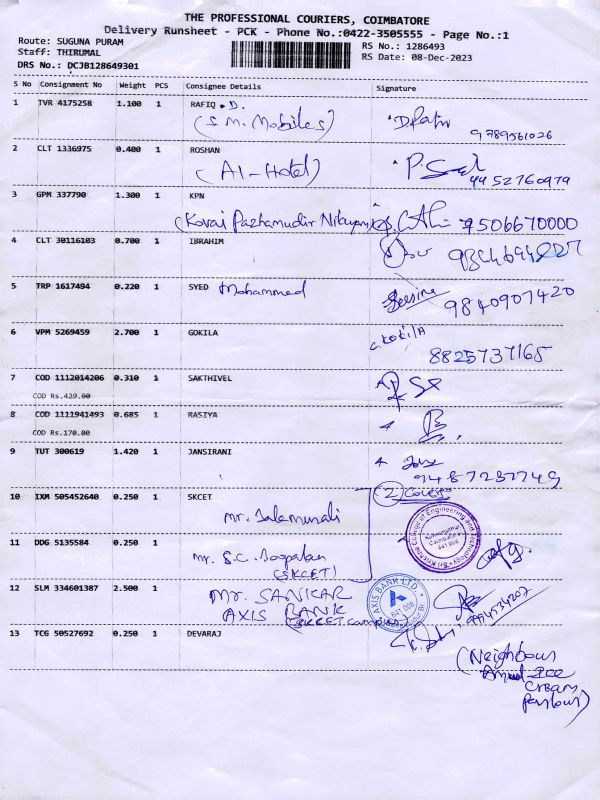 THE PROFESSIONAL COURIERS, COIMBATORE
Delivery Runsheet - PCK - Phone No.:0422-3505555 - Page No.:1
Route: SUGUNA PURAM
RS No.: 1286493
Staff: THIRUMAL
RS Date: 08-Dec-2023
DRS No.: DCJB128649301
S No Consignment No Weight PCS Consignee Details Signature
1 TVR 4175258 1.100 1 RAFIQ .D.
(S.M. Mobiles)
9789561026
2 CLT 1336975 0.400 1 ROSHAN
(A1-Hotel)
9452760979
3 GPM 337790 1.300 1 KPN
(Kovai Pazhamudir Nilayam) 7506670000
4 CLT 30116103 0.700 1 IBRAHIM
5 TRP 1617494 0.220 1 SYED Mohammed
9840907420
6 VPM 5269459 2.700 1 GOKILA C. KOKILA
8825737165
7 COD 1112014206 0.310 1 SAKTHIVEL
COD Rs.429.00
8 COD 1111941493 0.685 1 RASIYA
COD Rs.170.00
9 TUT 300619 1.420 1 JANSIRANI
9487237749
10 IXM 505452640 0.250 1 SKCET (2) Cover
Mr. Balamurali
Sri Krishna College of Engineering and Technology
Coimbatore
641 008
11 DDG 5135584 0.250 1
Mr. S.C.
(SKCET)
12 SLM 334601387 2.500 1 Mr. SANKAR
AXIS BANK
(SKCET campus)
AXIS BANK LTD.
641 008
9994534207
13 TCG 50527692 0.250 1 DEVARAJ
(Neighbour
Ice
Cream
Parlour)